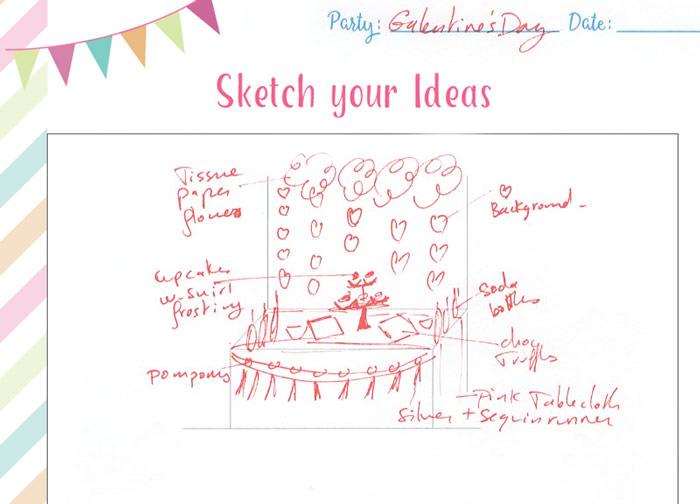 Party: Galentine's Day Date:
Sketch your Ideas
Tissue
paper
flowers
♡
Background
cupcakes
w. swirl
frosting
soda
bottles
choc
Truffls
pompoms
pink Tablecloth
silver + sequin runner